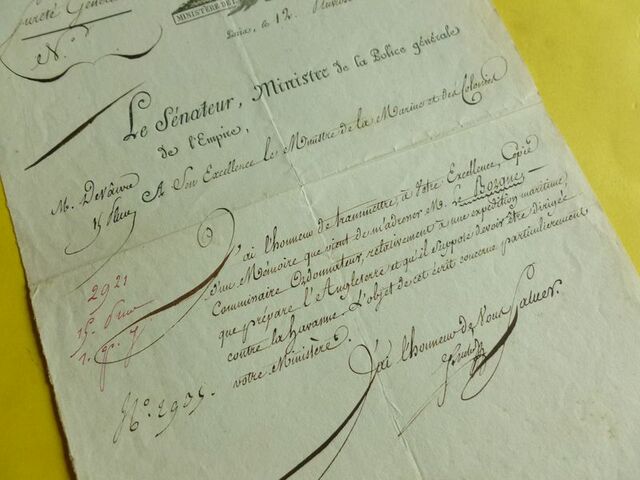 Sureté Géné
N°.
MINISTÈRE DE L
Paris, le 12.
Le Sénateur, Ministre de la Police générale
de l'Empire,
A Son Excellence le Ministre de la Marine et des Colonies
M. Devâvre
15
J'ai l'honneur de transmettre, à Votre Excellence, Copie
d'un Mémoire que vient de m'adresser M. Le Borgne,
Commissaire Ordonnateur, relativement à une expédition maritime,
que prépare l'Angleterre et qu'il suppose devoir être dirigée
contre la havanne. L'objet de cet écrit concerne particulièrement
votre Ministère.
2921
15.
1.
N°. 2935.
J'ai l'honneur de Vous Saluer.